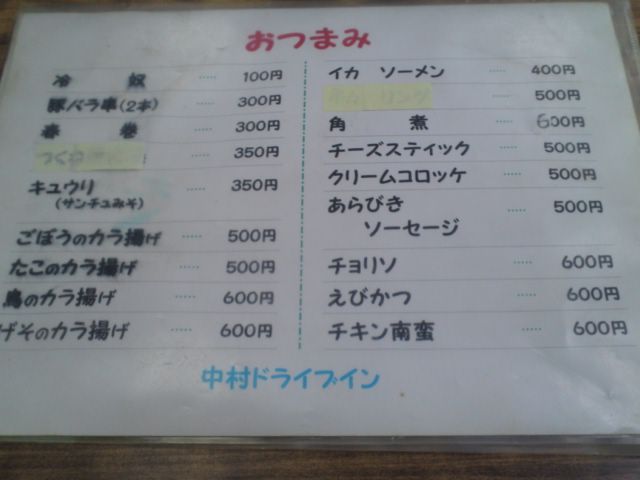 おつまみ
冷 奴 ····· 100円
豚バラ串(2本) ····· 300円
春 巻 ····· 300円
····· 350円
キュウリ ····· 350円
(サンチュみそ)
ごぼうのカラ揚げ ····· 500円
たこのカラ揚げ ····· 500円
鳥のカラ揚げ ····· 600円
げそのカラ揚げ ····· 600円
イカ ソーメン ····· 400円
リング ····· 500円
角 煮 ····· 600円
チーズスティック ····· 500円
クリームコロッケ ····· 500円
あらびき
ソーセージ ····· 500円
チョリソ ····· 600円
えびかつ ····· 600円
チキン南蛮 ····· 600円
中村ドライブイン